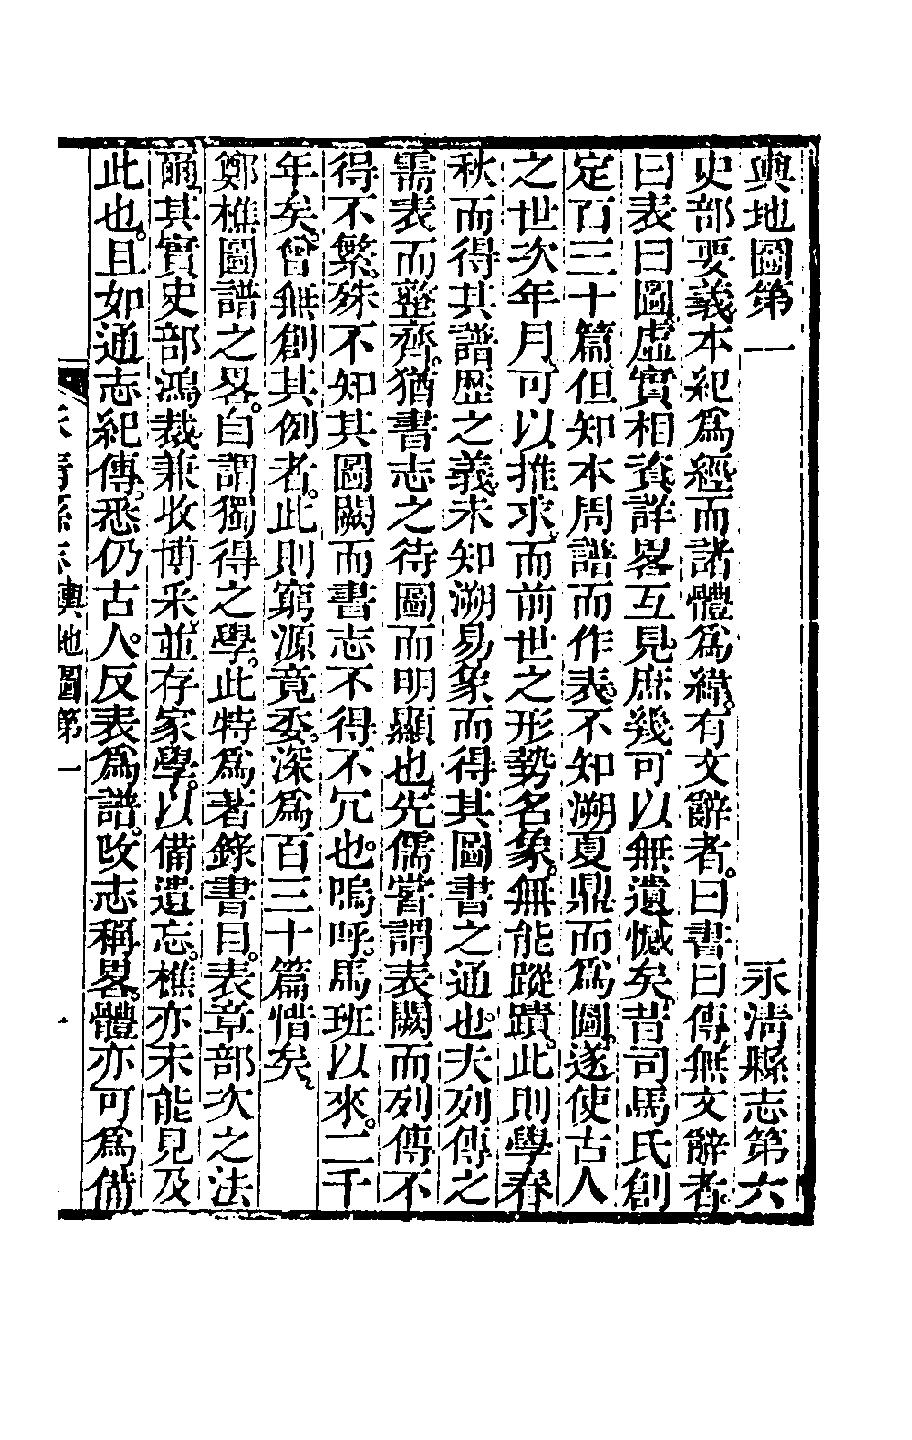 輿地圖第一　永淸縣志第六
史部要義本紀爲經而諸體爲緯。有文辭者。曰書曰傳無文辭者
曰表曰圖虛實相資詳畧互見。庶幾可以無遺憾矣。昔司馬氏創
定百三十篇但知本周譜而作表。不知溯夏鼎而爲圖。遂使古人
之世次年月。可以推求。而前世之形勢名象。無能蹤蹟。此則學春
秋而得其譜歷之義。未知溯易象而得其圖書之通也。夫列傳之
需表而整齊。猶書志之待圖而明顯也。先儒嘗謂表闕而列傳不
得不繁殊不知其圖闕而書志不得不冗也。嗚呼。馬班以來。二千
年矣。曾無創其例者。此則窮源竟委。深爲百三十篇惜矣。
鄭樵圖譜之畧。自謂獨得之學。此特爲著錄書目。表章部次之法
爾。其實史部鴻裁。兼收博釆。並存家學。以備遺忘。樵亦未能見及
此也。且如通志紀傳。悉仍古人。反表爲譜。改志稱畧。體亦可爲備
永淸縣志　輿地圖第一　一